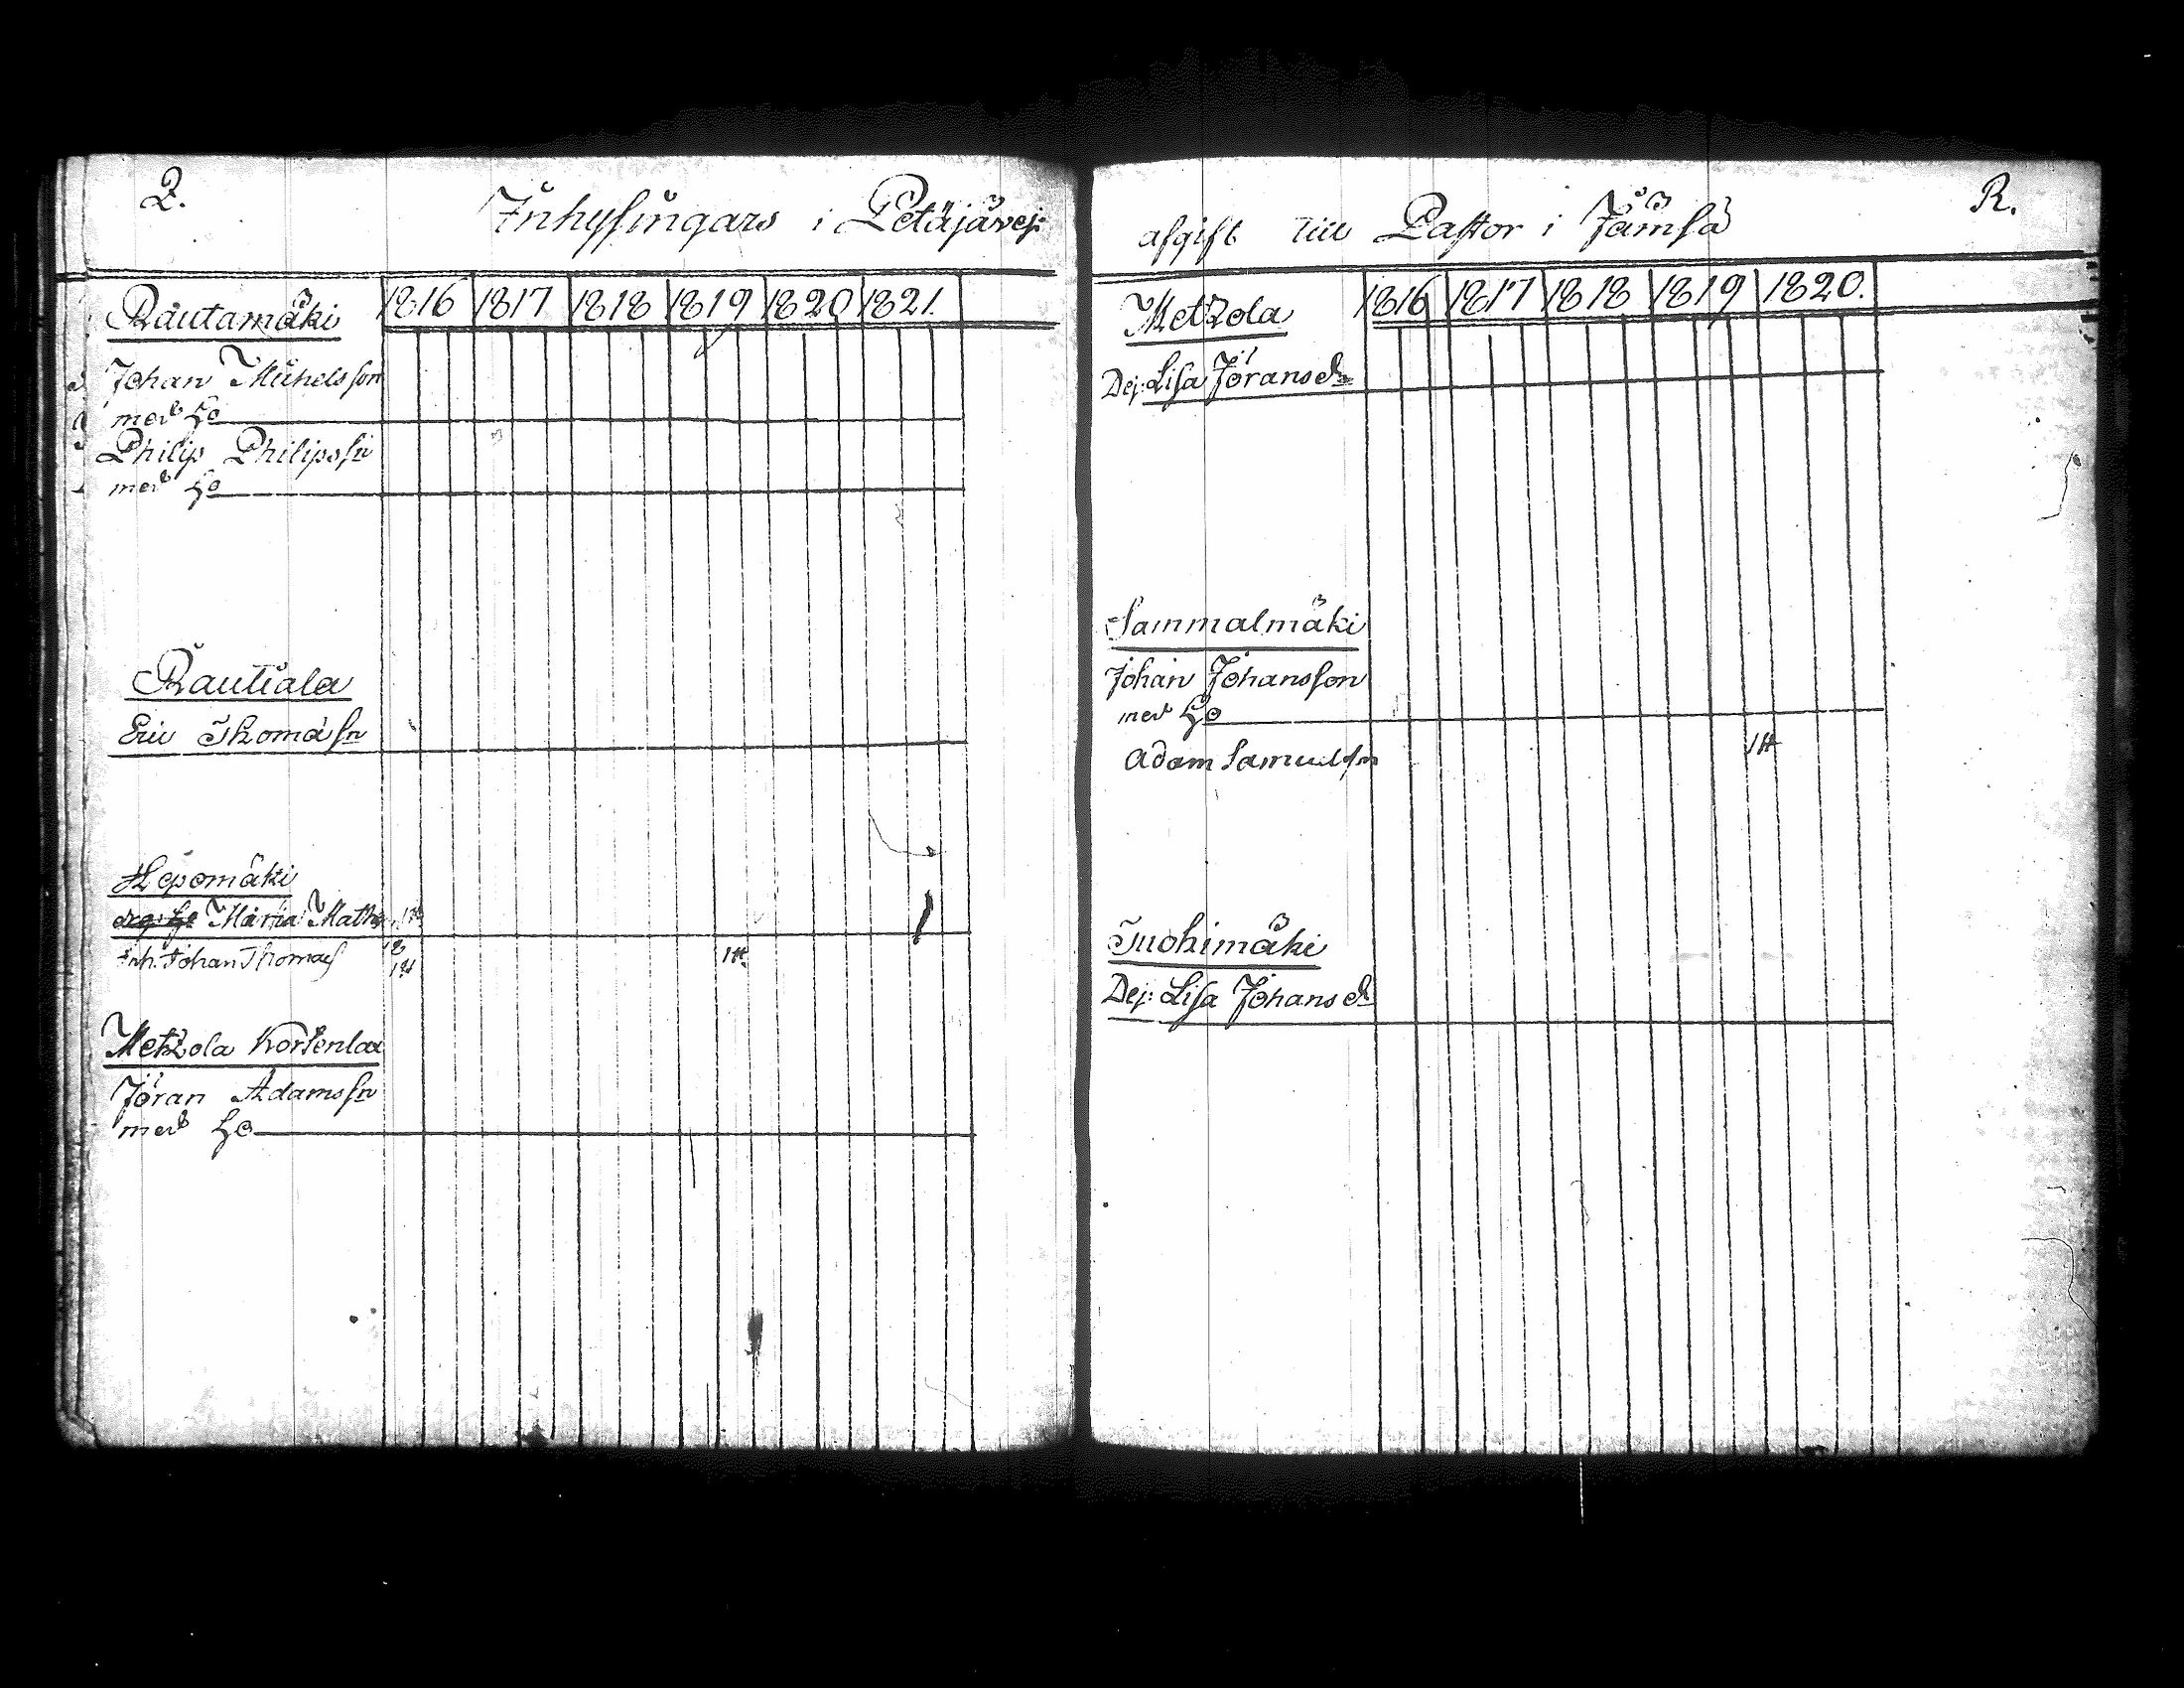 2.
Inhysingars i Petäjävesi
1816 1817 1818 1819 1820 1821.
Rautamäki
Johan Michelsson
med Ho
Philip Philipssn
med Ho
Rautiala
Eric Thomasn
Hepomäki
Maria Math
Inh. Johan Thomas
Metzola Kortenlax
Jöran Adamssn
med Ho
R.
afgift till Pastor i Jämsä
1816 1817 1818 1819 1820.
Metzola
Dej: Lisa Jöransdr
Sammalmäki
Johan Johansson
med Ho
Adam Samuelsn
Tuohimäki
Dej: Lisa Johansdr